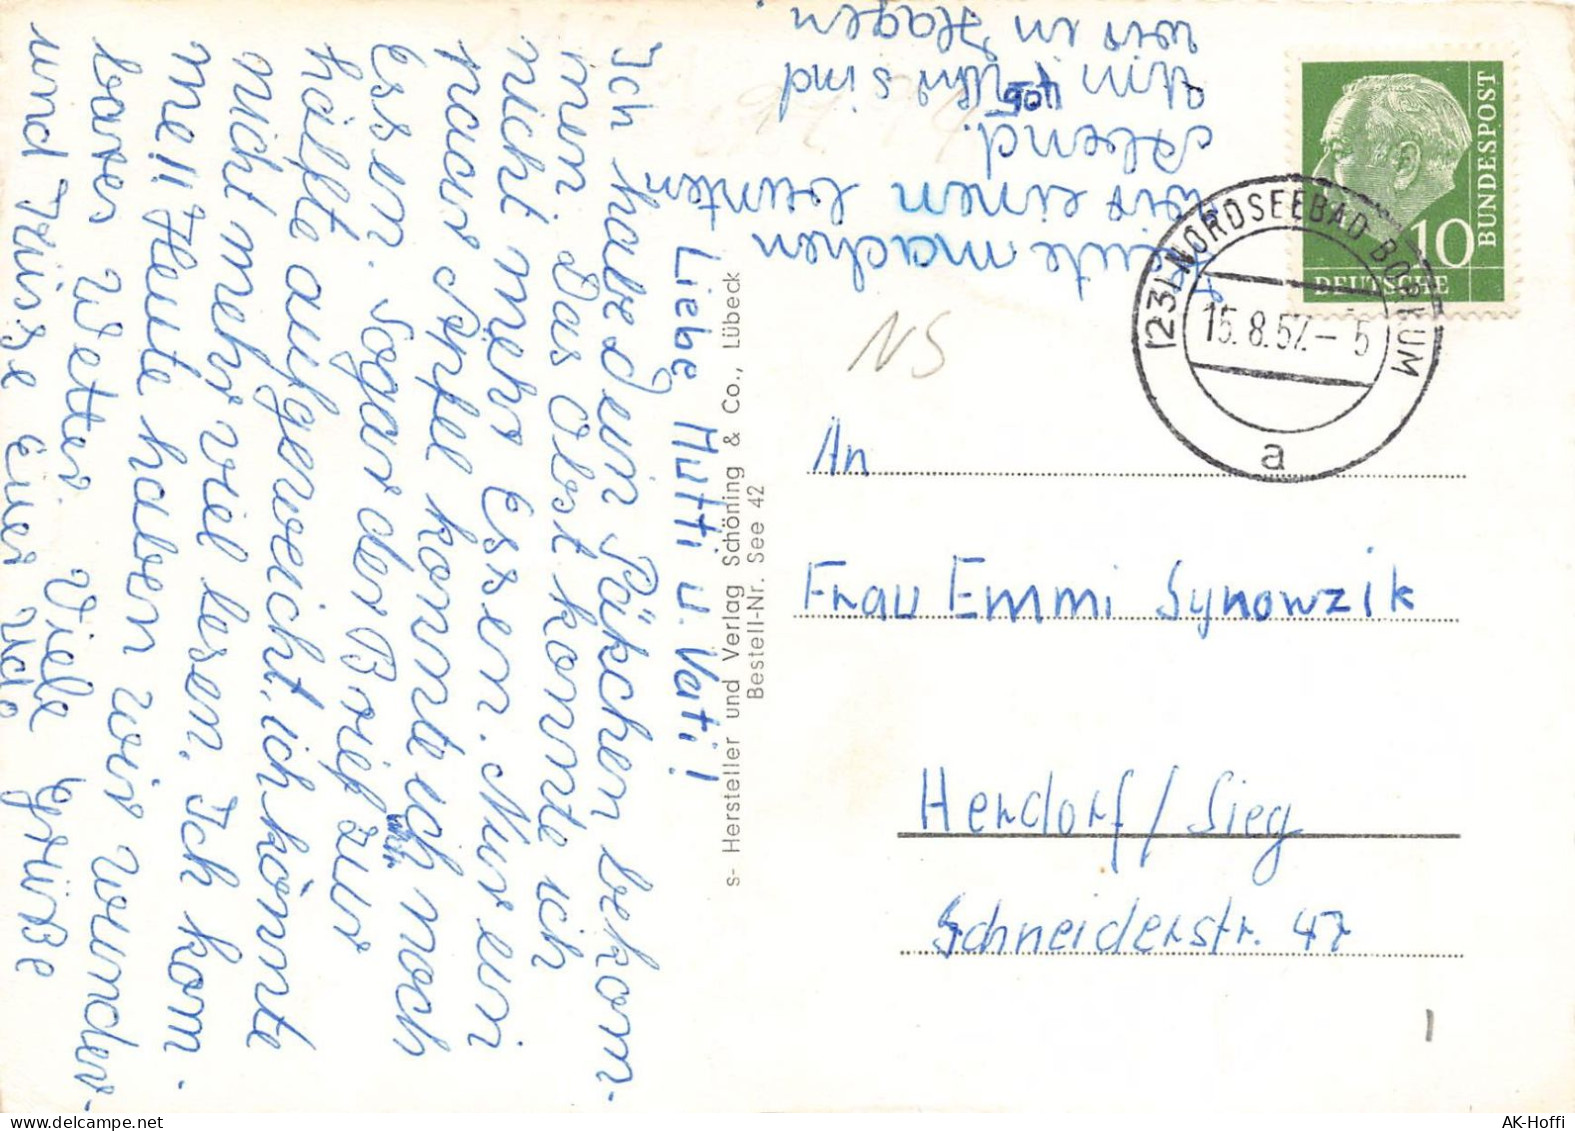 Liebe Mutti u. Vati!
Ich habe dein Päkchen bekom-
men. Das Obst konnte ich
nicht mehr Essen. Nur ein
paar Apfel konnte ich noch
Essen. Sogar der Brief zur
hälfte aufgeweicht. ich könnte
nicht mehr viel lesen. Ich kom-
me!! Heute haben wir wunder-
bares Wetter. Viele Grüße
und Küsse Euer Udo
Heute machen
wir einen bunten
Abend.
Um 4 05 Uhr sind
wir in Hagen
s- Hersteller und Verlag Schöning & Co., Lübeck
Bestell-Nr. See 42
NS
BUNDESPOST
10
DEUTSCHE
(23) NORDSEEBAD BORKUM
15.8.57.-5
a
An
Frau Emmi Synowzik
Herdorf/Sieg
Schneiderstr. 47
AK-Hoffi